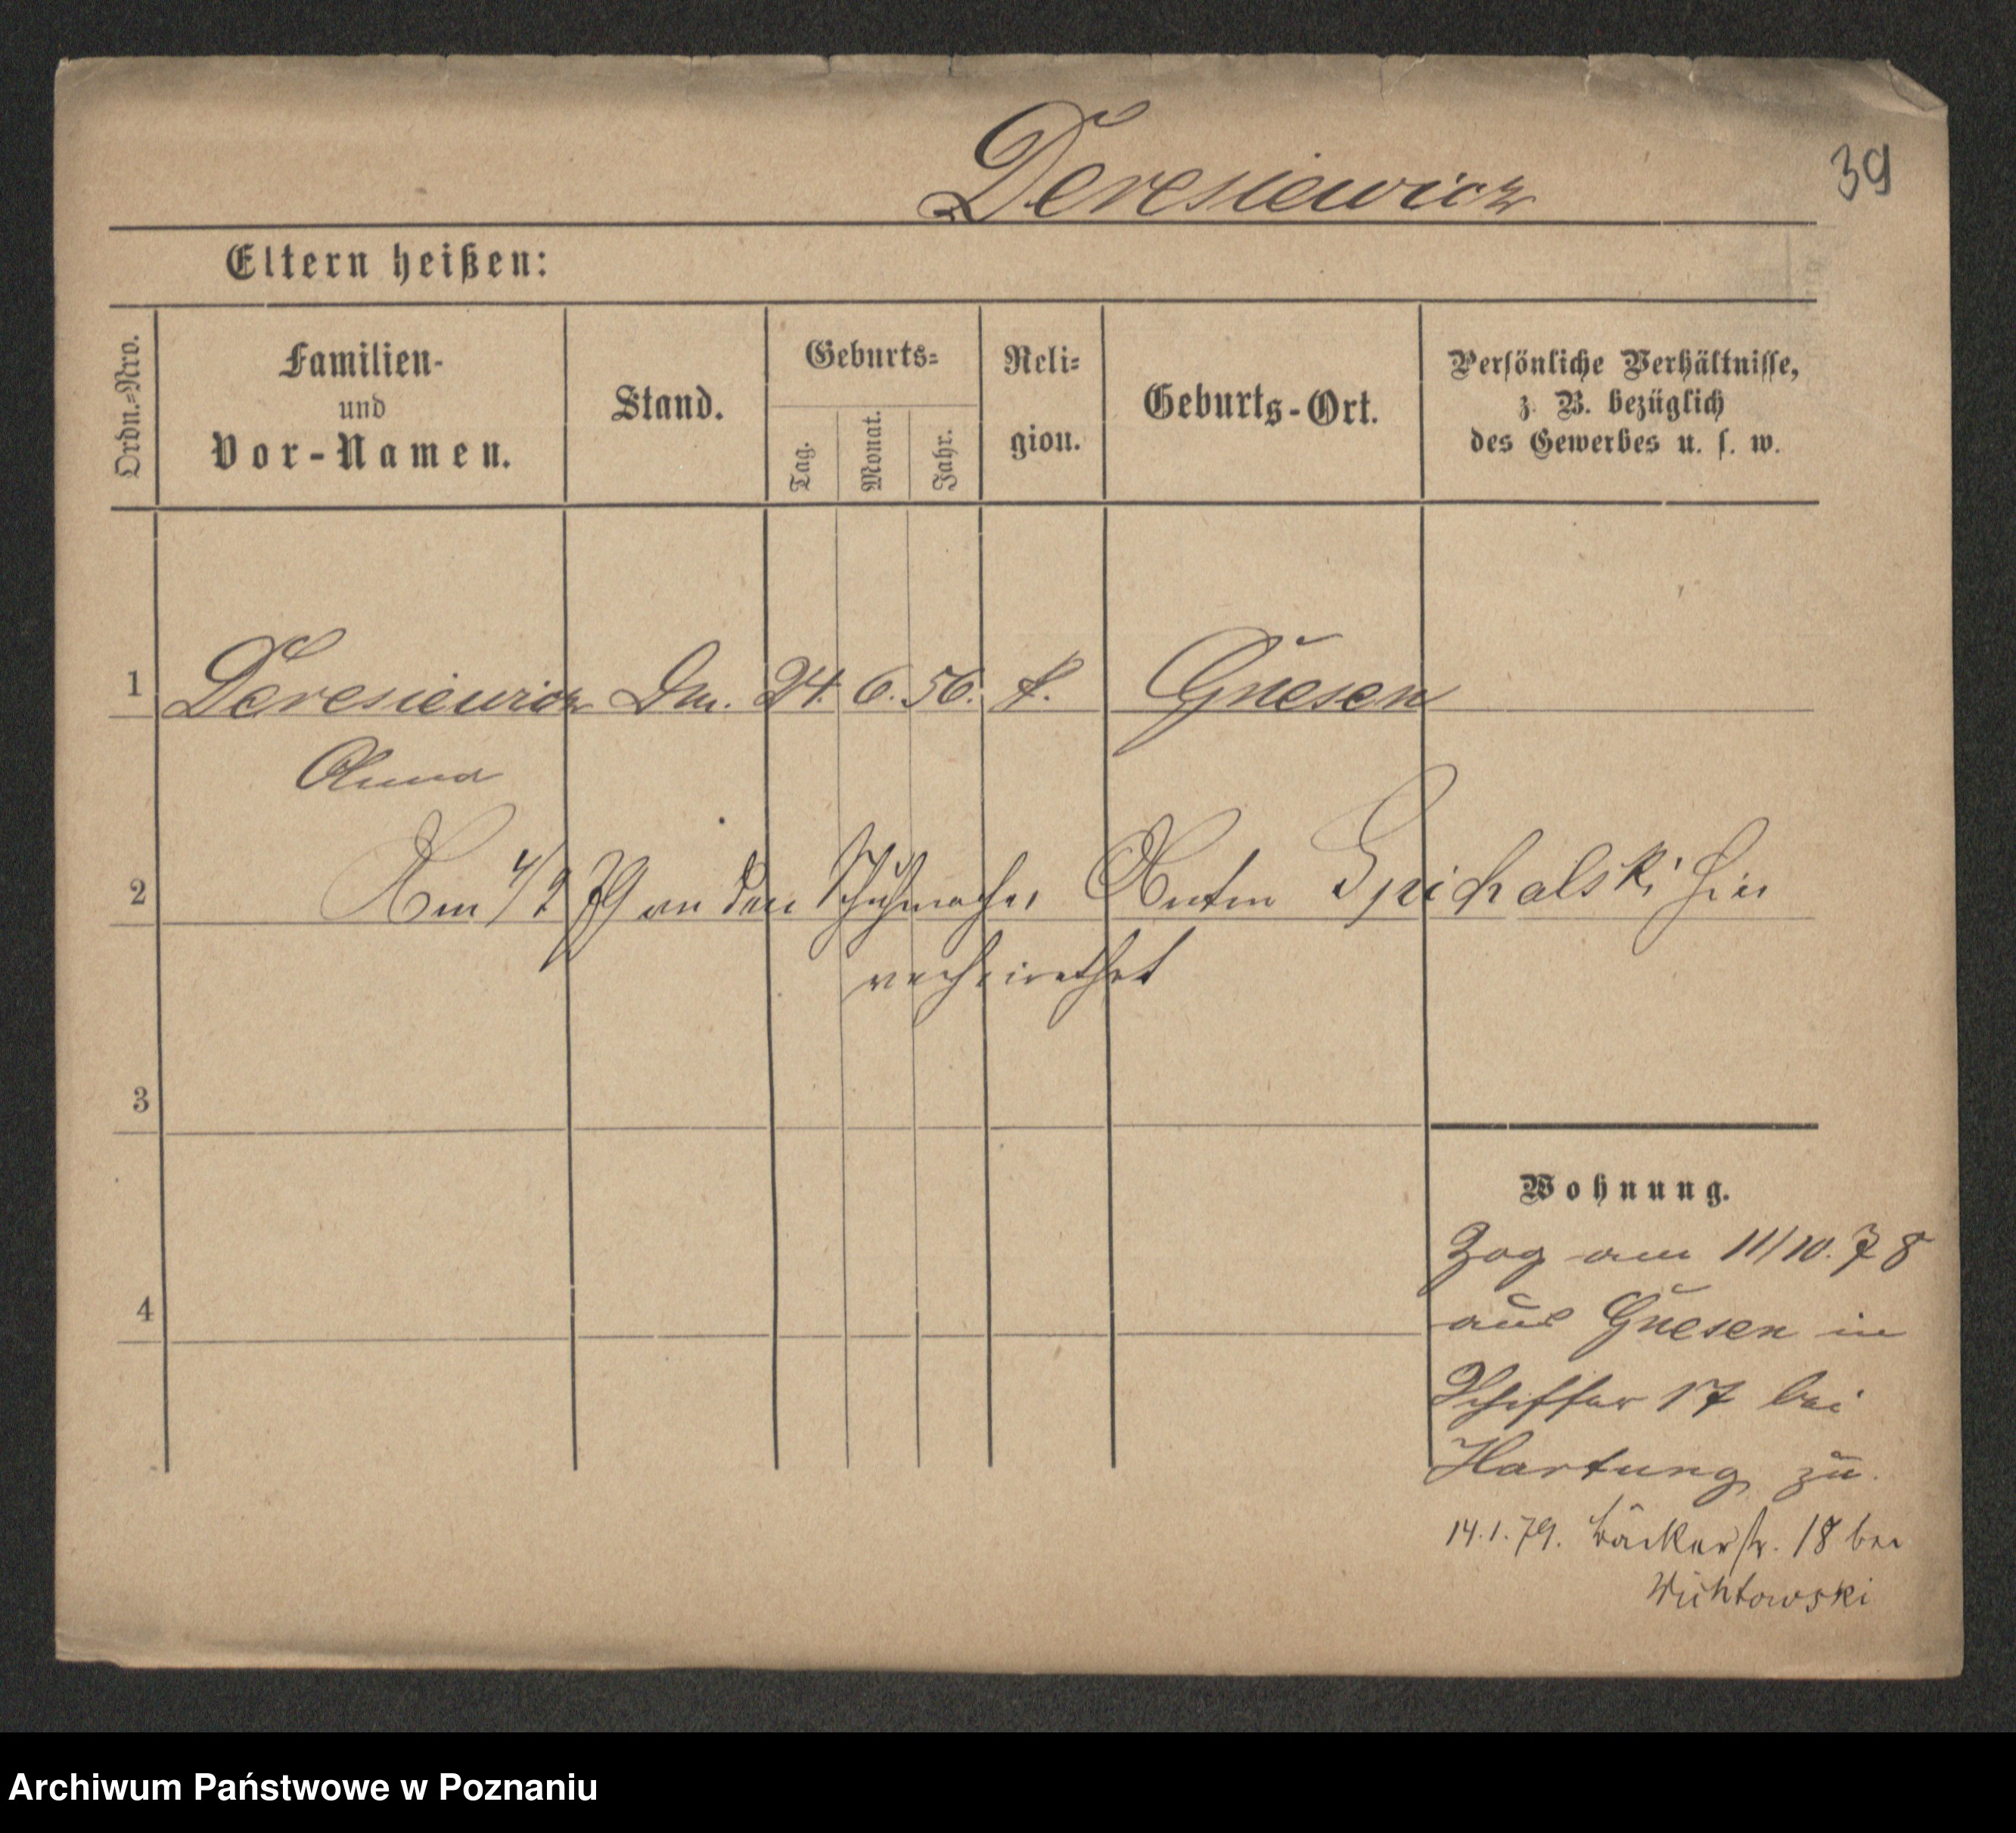 Deresiewicz
39
Eltern heißen:
Ordn.-Nro.
Familien-
und
Vor-Namen.
Stand.
Geburts-
Tag.
Monat.
Jahr.
Reli-
gion.
Geburts-Ort.
Persönliche Verhältnisse,
z. B. bezüglich
des Gewerbes u. s. w.
1 Deresiewicz 24. 6. 56. k. Gnesen
Anna
2 Am 4/2 79 an den Schuhmacher Anton Spichalski hier
verheirathet
3
4
Wohnung.
Zog am 11/10.78
aus Gnesen in
Schiffer 17 bei
Hartung zu.
14.1.79. Bäckerstr. 18 bei
Wichtowski
Archiwum Państwowe w Poznaniu